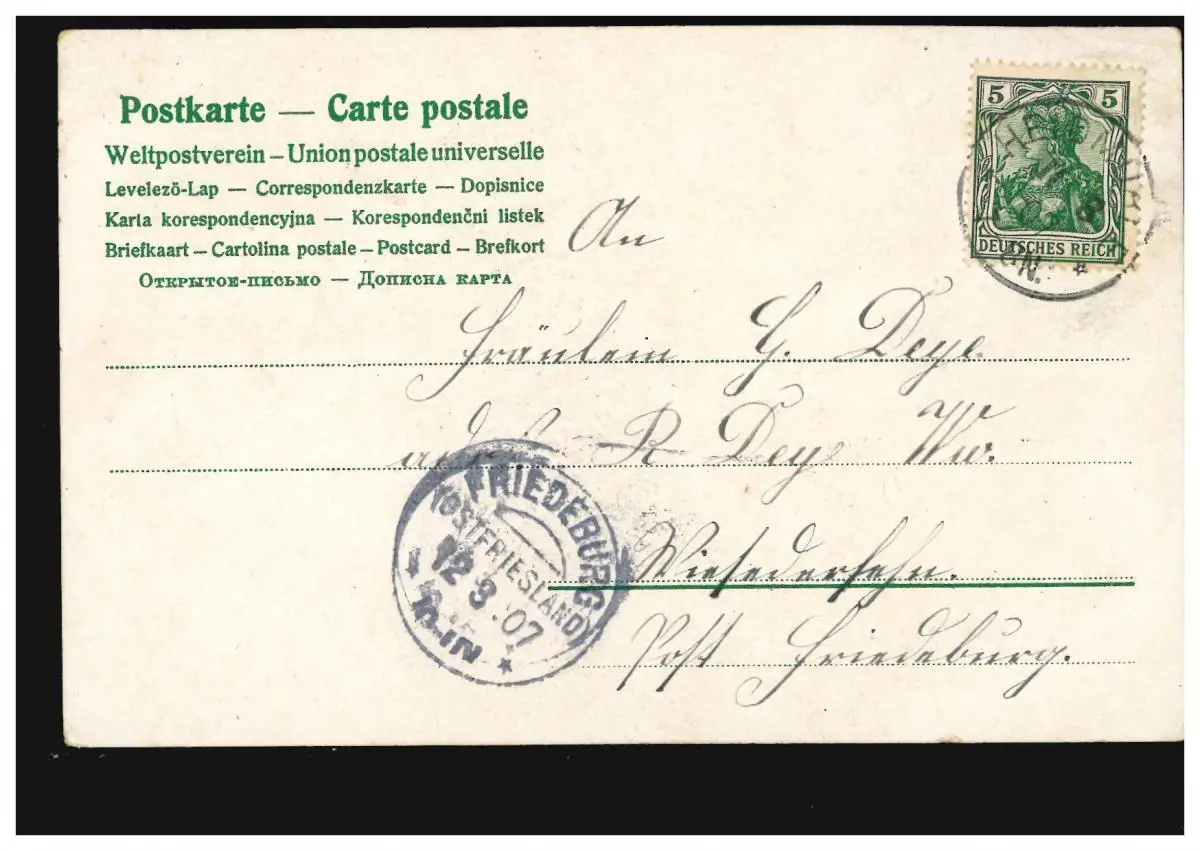 Postkarte — Carte postale
Weltpostverein – Union postale universelle
Levelezö-Lap — Correspondenzkarte — Dopisnice
Karta korespondencyjna — Korespondenčni listek
Briefkaart – Cartolina postale – Postcard – Brefkort
Открытое-письмо — Дописна карта
5 5
DEUTSCHES REICH
An
Fräulein H. Deye
R Deye Ww.
FRIEDEBURG
(OSTFRIESLAND)
12 3 .07
10-11N
Wiesederfehn.
Post Friedeburg.